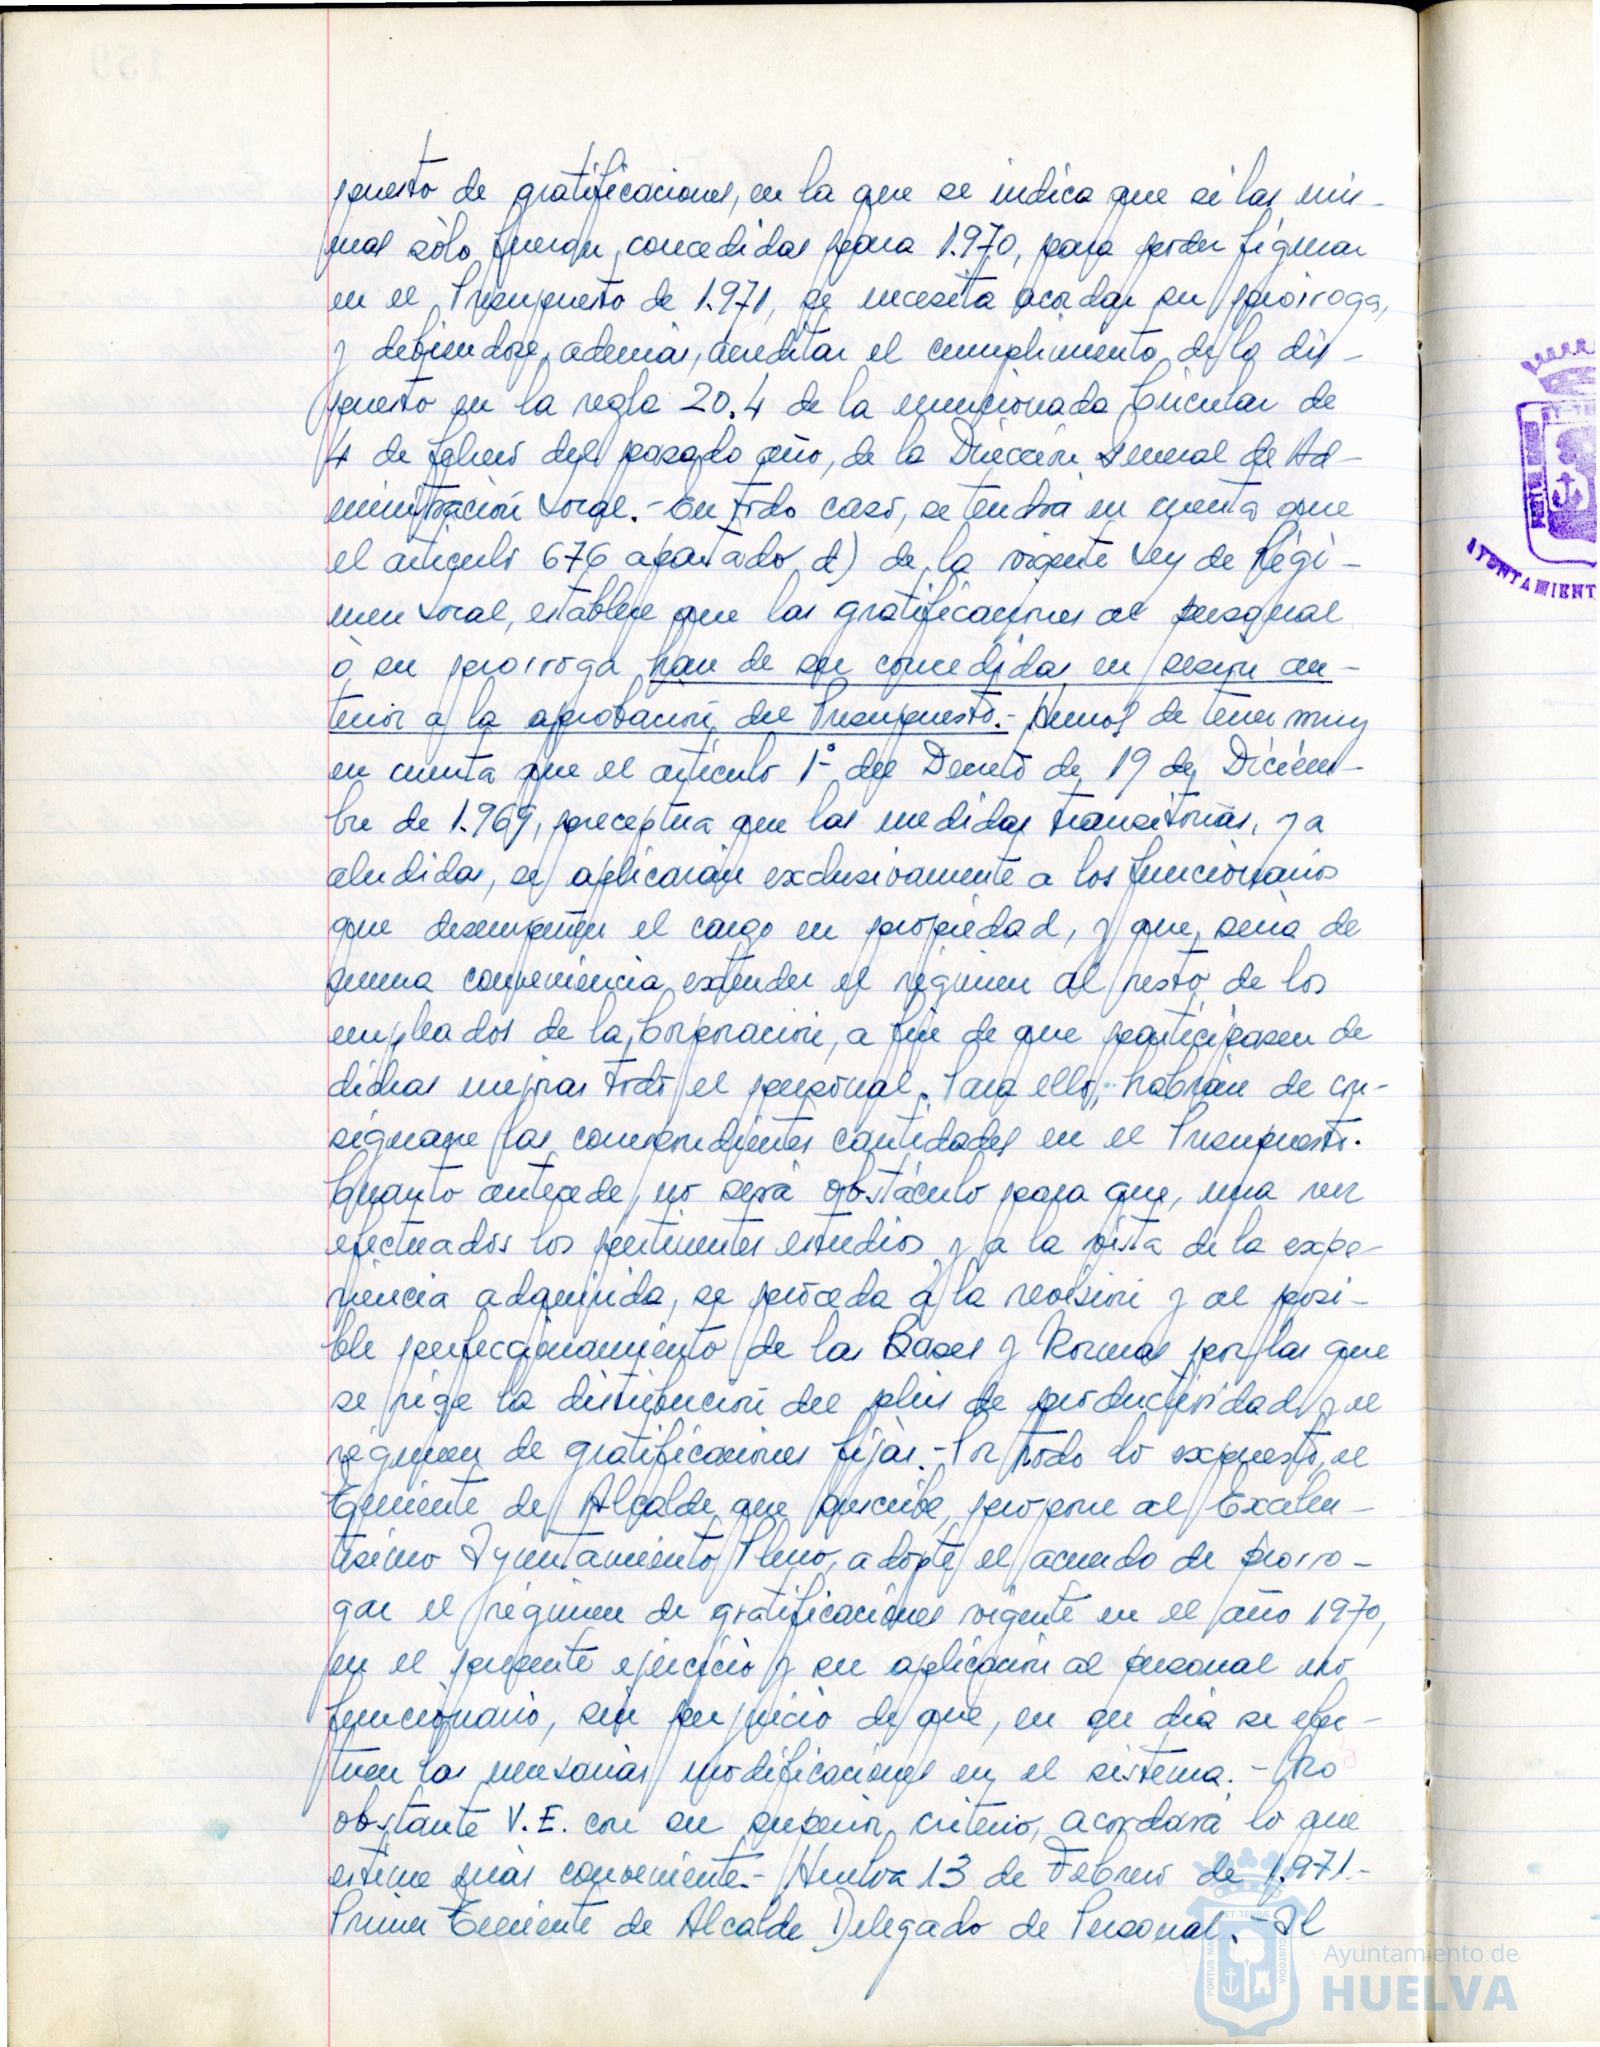 puesto de gratificaciones, en la que se indica que si las mis-
mas sólo fueran concedidas para 1.970, para poder figurar
en el Presupuesto de 1.971, se necesita acordar su prórroga,
y debiendose, además, acreditar el cumplimiento de lo dis-
puesto en la regla 20.4 de la mencionada Circular de
4 de febrero del pasado año, de la Dirección General de Ad-
ministración Local.- En todo caso, se tendrá en cuenta que
el artículo 676 apartado d) de la vigente Ley de Régi-
men Local, establece que las gratificaciones al personal
ó su prorroga han de ser concedidas en sesión an-
terior a la aprobación del Presupuesto.- Hemos de tener muy
en cuenta que el artículo 1º del Decreto de 19 de Diciem-
bre de 1.969, preceptua que las medidas transitorias, ya
aludidas, se aplicarán exclusivamente a los funcionarios
que desempeñen el cargo en propiedad, y que sería de
suma conveniencia extender el régimen al resto de los
empleados de la Corporación, a fin de que participasen de
dichas mejoras todo el personal. Para ello, habrán de con-
signarse las correspondientes cantidades en el Presupuesto.
Cuanto antecede, no será obstáculo para que, una vez
efectuados los pertinentes estudios y a la vista de la expe-
riencia adquirida, se proceda a la revisión y al posi-
ble perfeccionamiento de las Bases y Normas por las que
se rige la distribución del plus de productividad y el
régimen de gratificaciones fijas.- Por todo lo expuesto, el
Teniente de Alcalde que suscribe, propone al Excelen-
tísimo Ayuntamiento Pleno, adopte el acuerdo de prorro-
gar el régimen de gratificaciones vigente en el año 1970,
en el presente ejercicio y su aplicación al personal no
funcionario, sin perjuicio de que, en su día se efec-
tuen las necesarias modificaciones en el sistema.- No
obstante V.E. con su superior criterio, acordará lo que
estime más conveniente.- Huelva 13 de Febrero de 1.971.-
Primer Teniente de Alcalde Delegado de Personal.- El
AYUNTAMIENT
Ayuntamiento de
HUELVA
PORTUS MA
ET TERRÆ
CUSTODIA